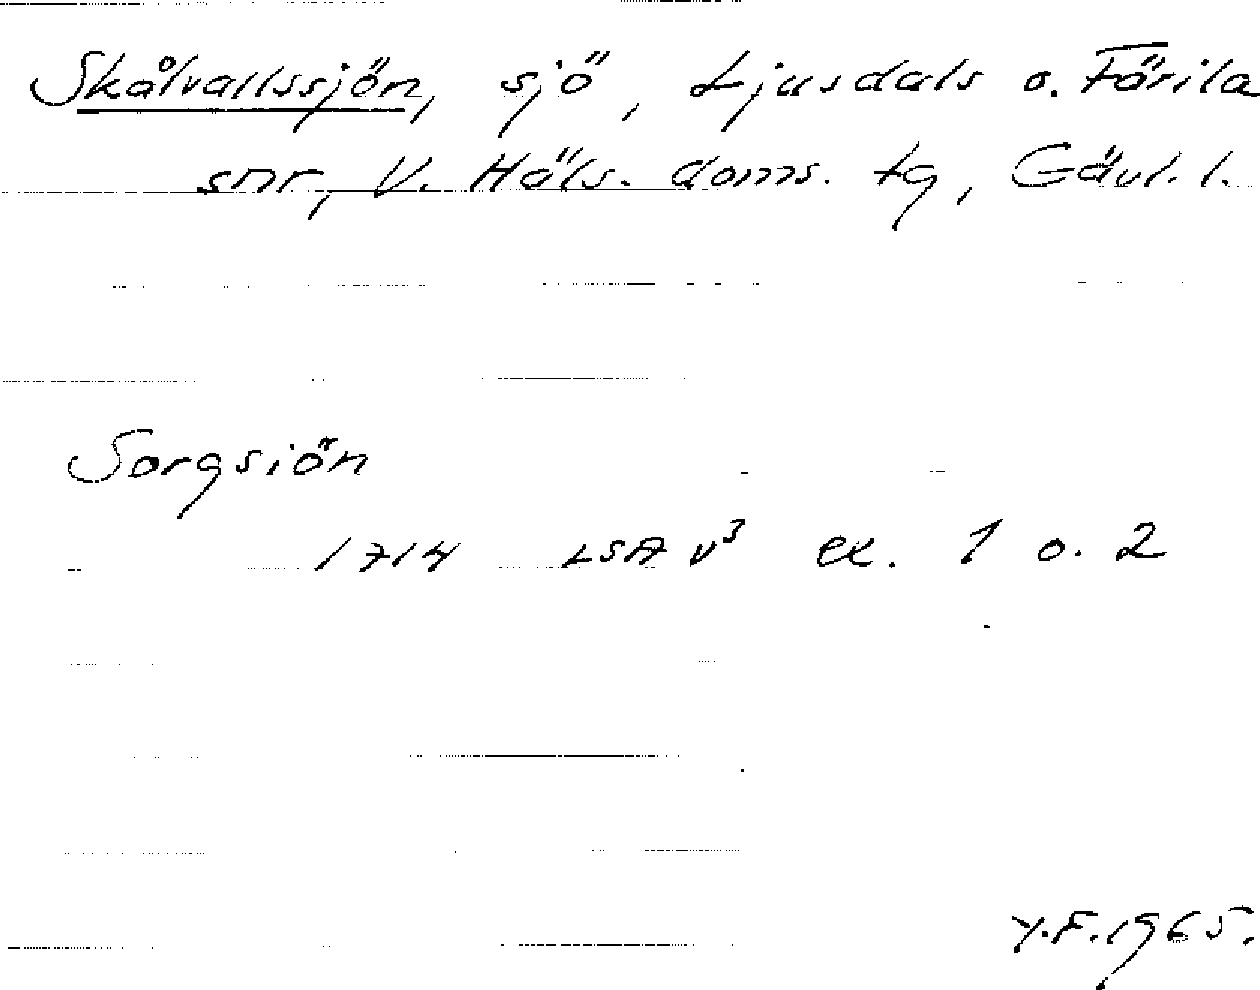 Skålvallssjön, sjö, Ljusdals o. Färila
snr, V. Häls. doms. tg, Gävl. l.
Sorgsiön
1714 LSA v³ ex. 1 o. 2
Y.F. 1965.